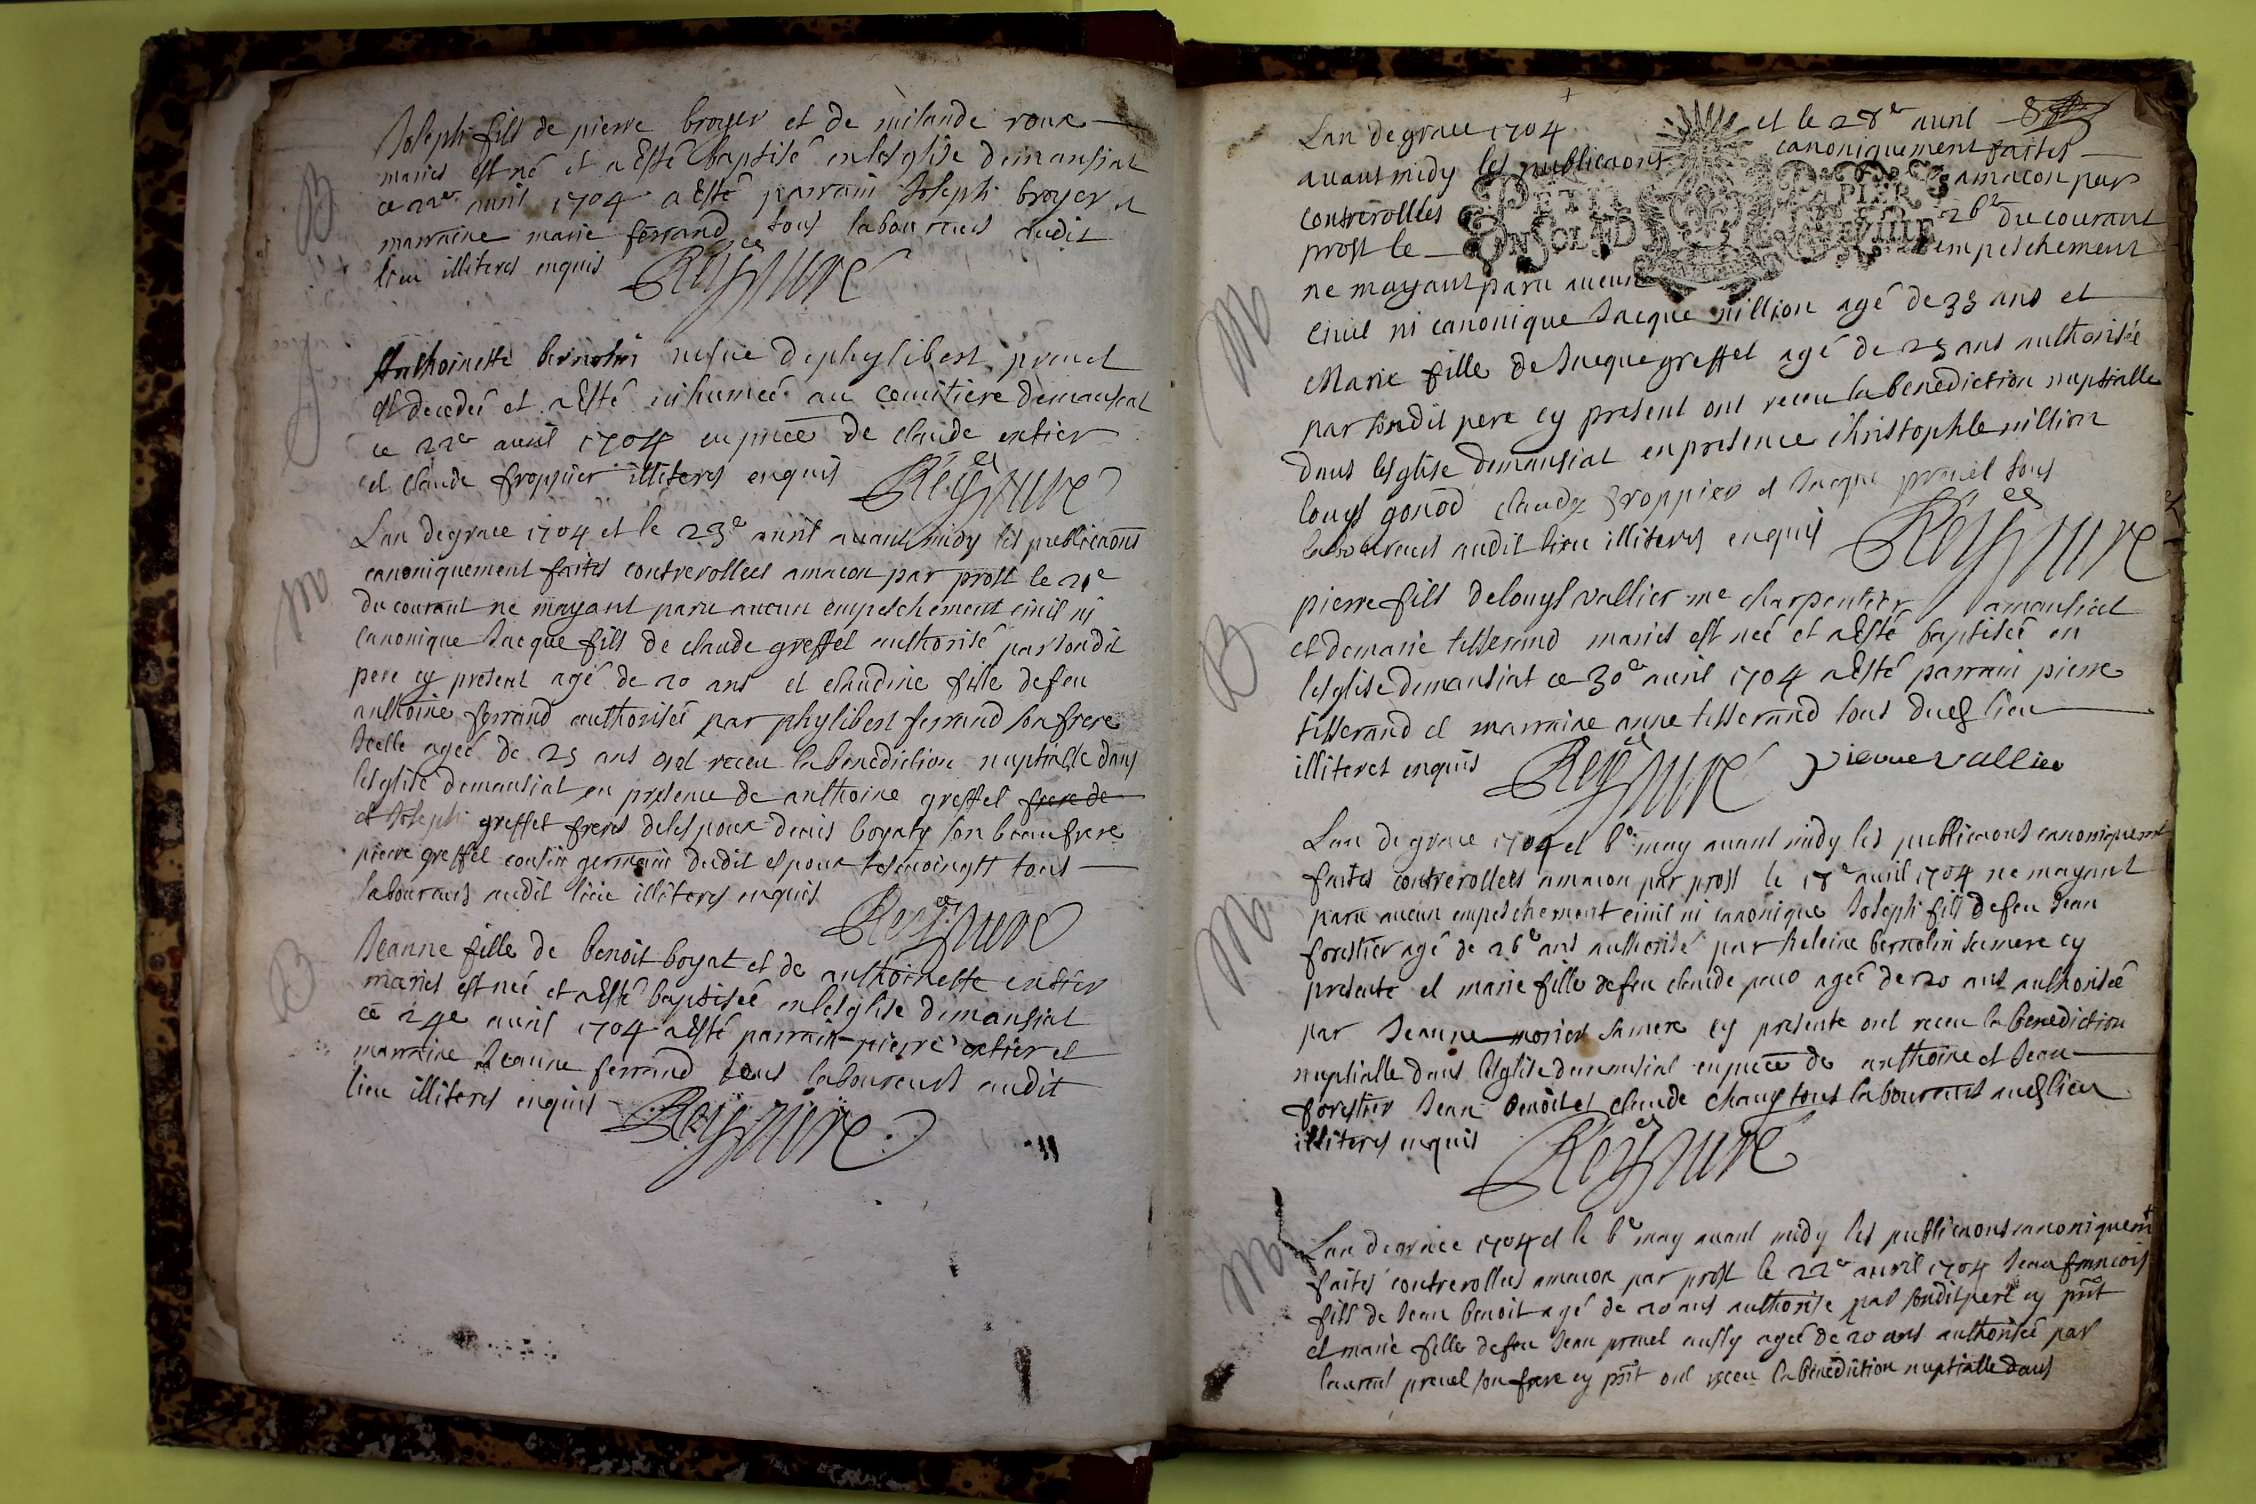 B
Joseph fils de pierre broyer et de milande roux
mariés est né et a Esté baptisé en lesglise demansiat
ce 22e avril 1704 a Esté parrain Joseph broyer et
marraine marie ferrand tous laboureurs audit
lieu illiteres enquis Reyssure
Anthoinette bernolin vefve de phylibert pruvel
est decedeé et a Esté inhumeé au cemitiere demansiat
ce 22e avril 1704 en pnce de claude entier
et claude froppier illiteres enquis Reyssure
M
Lan de grace 1704 et le 23e avril avant midy les publicaons
canoniquement faites controrolleés amacon par prost le 21e
du courant ne mayant paru aucun empeschement civil ni
canonique Jacque fils de claude greffet authorisé par sondit
pere cy present agé de 20 ans et claudine fille de feu
anthoine ferrand authoriseé par phylibert ferrand son frere
Icelle ageé de 25 ans ont receu la benediction nuptialle dans
lesglise demansiat en presence de anthoine greffet frere de
et Joseph greffet freres delespoux denis boyaty son beaufrere
pierre greffet cousin germain dudit espoux tesmoingtt tous
laboureurs audit lieu illiteres enquis
Reyssure
B
Jeanne fille de benoit boyat et de anthoinette entier
mariés est neé et a Esté baptiseé en lesglise demansiat
ce 24e avril 1704 a Esté parrain pierre entier et
marraine Jeanne ferrand tous laboureurs audit
lieu illiteres enquis Reyssure
Lan de grace 1704 et le 28e avril
avant midy les publicaons canoniquement faites
controrolleés amacon par
prost le 26e du courant
ne mayant paru aucun empeschement
PETIT PAPIER
M
civil ni canonique Jacque nillion agé de 35 ans et
Marie fille de Jacque greffet agé de 25 ans authoriseé
par sondit pere cy present ont receu la benediction nuptialle
dans lesglise demansiat en presence christophle nillion
louys gonod claude froppier et Jacque pruvel tous
laboureurs audit lieu illiteres enquis Reyssure
B
pierre fils de louys vallier me charpentier amansiat
et de marie tisserand mariés est neé et a Esté baptiseé en
lesglise demansiat ce 30e avril 1704 a Esté parrain pierre
tisserand et marraine anne tisserand tous dud lieu
illiteres enquis Reyssure pierre vallier
M
Lan de grace 1704 et 6e may avant midy les publicaons canoniquemt
faites controrolleés amacon par prost le 18e avril 1704 ne mayant
paru aucun empeschement civil ni canonique Joseph fils de feu Jean
forestier agé de 26e ans authorisé par heleine bernolin sa mere cy
presente et marie fille de feu claude ageé de 20 ans authoriseé
par Jeanne morier sa mere cy presente ont receu la benediction
nuptialle dans lesglise demansiat en pnce de anthoine et Jean
forestier Jean benoit et claude chaus tous laboureurs aud lieu
illiteres enquis Reyssure
M
Lan de grace 1704 et le 6e may avant midy les publicaons canoniquemt
faites controrolleés amacon par prost le 22e avril 1704 Jean francois
fils de Jean benoit agé de 20 ans authorisé par sondit pere cy pnt
et marie fille de feu Jean pruvel aussy ageé de 20 ans authoriseé par
laurent pruvel son frere cy pnt ont receu la benediction nuptialle dans